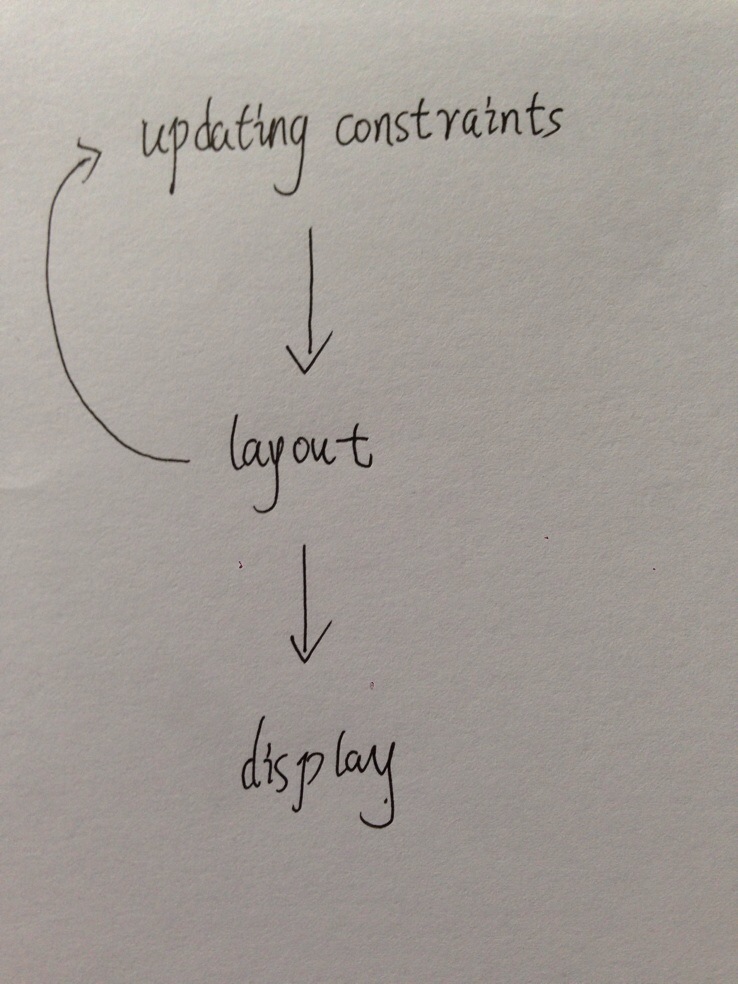 updating constraints
layout
display